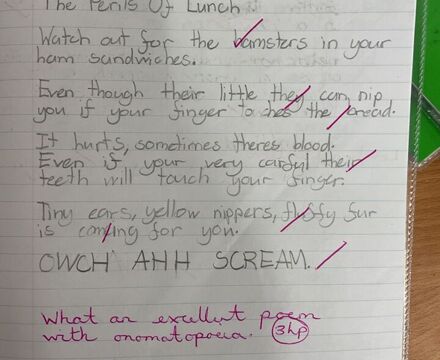 The Perils Of Lunch
Watch out for the hamsters in your
ham sandwiches.
Even though their little they can nip
you if your finger to ches the bread.
It hurts, sometimes theres blood.
Even if your very careful their
teeth will touch your finger.
Tiny ears, yellow nippers, flufy fur
is coming for you.
OWCH AHH SCREAM.
What an excellent poem
with onomatopoeia. 3hp